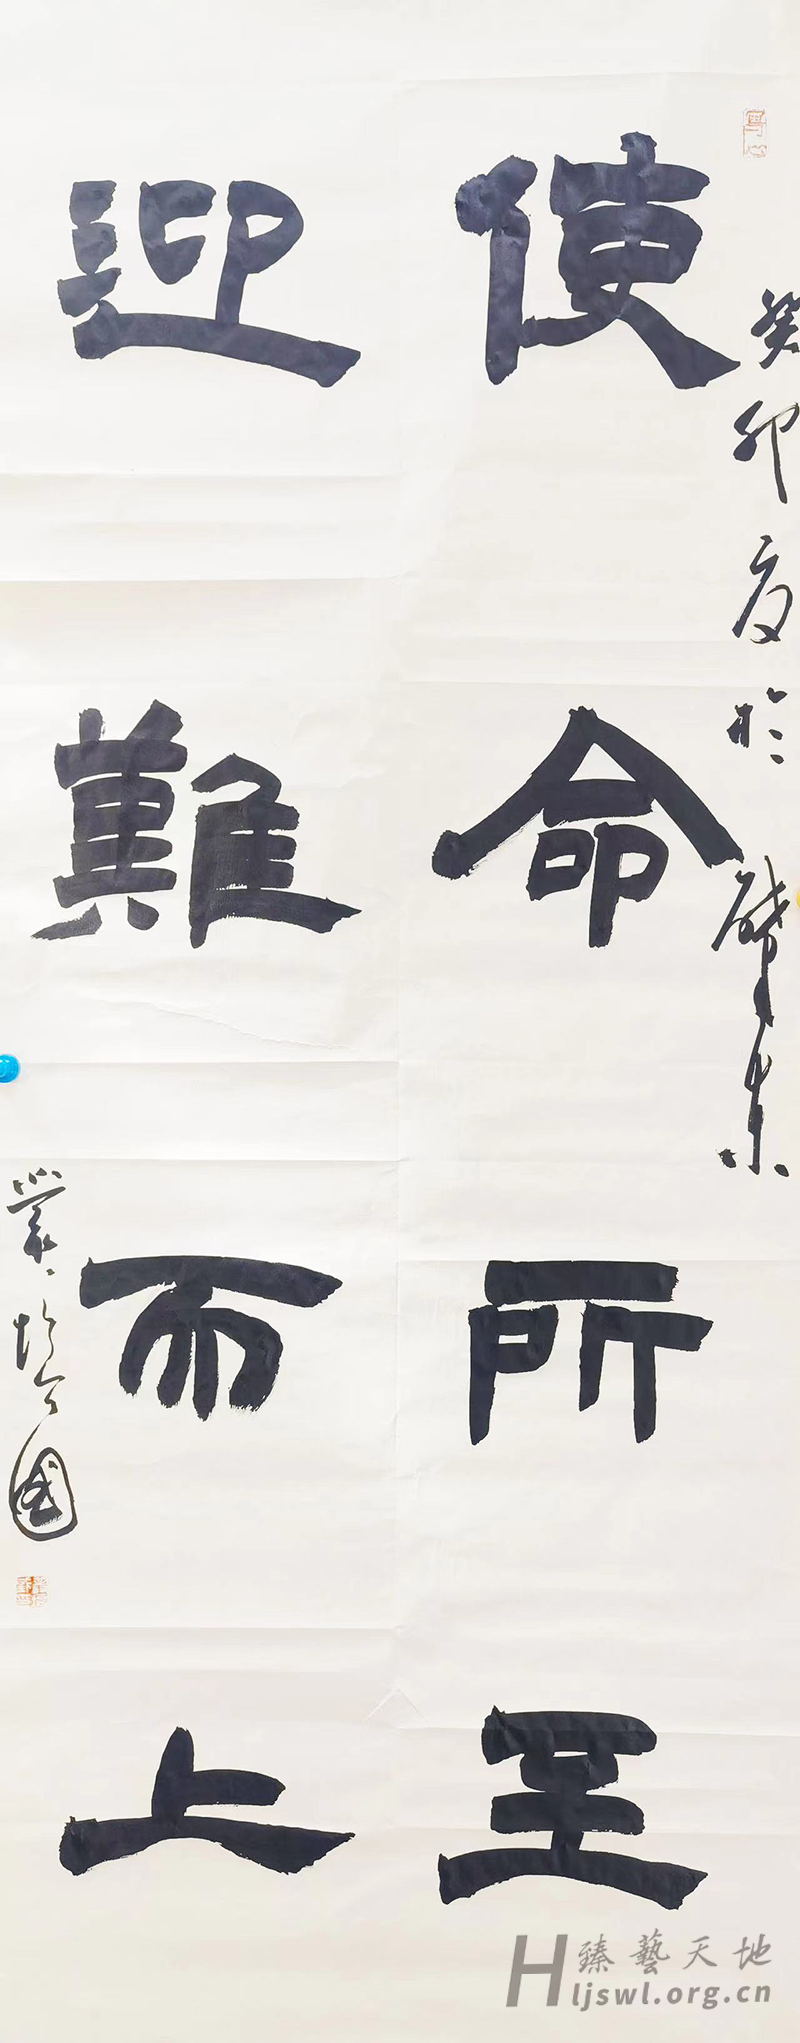 使命所至
迎難而上
癸卯夏於肇東
國
臻藝天地
Hljswl.org.cn